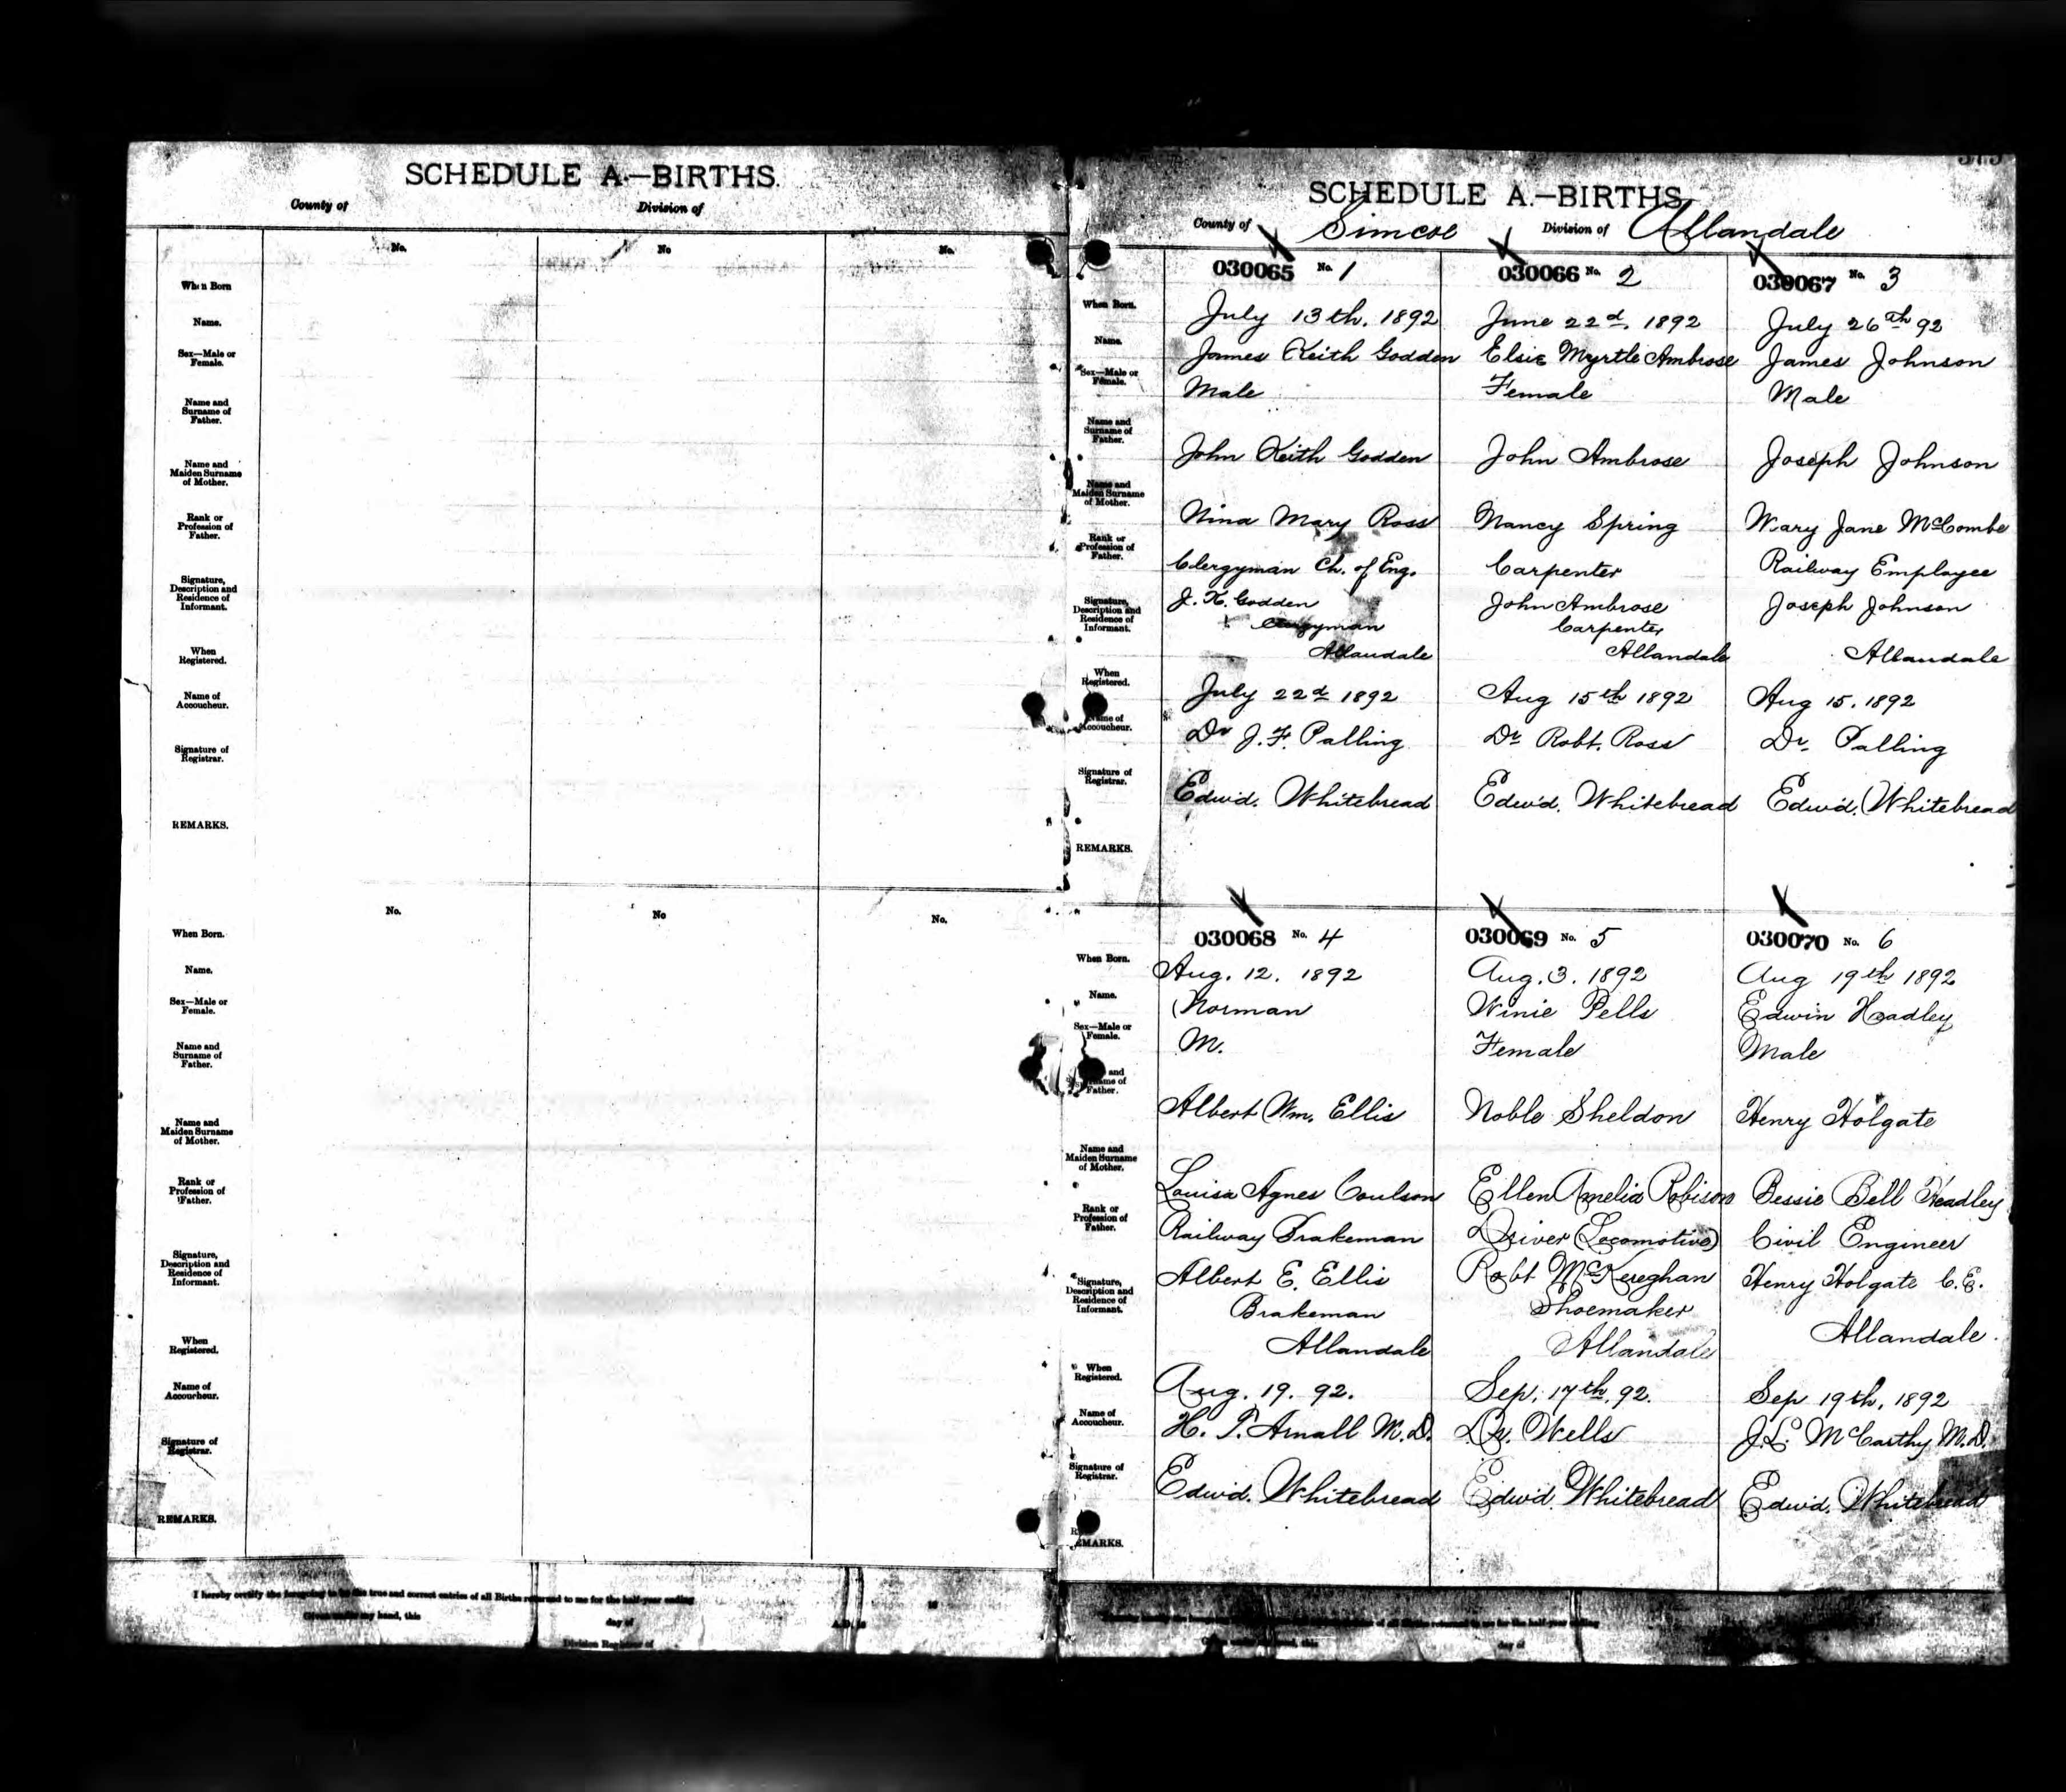 SCHEDULE A.—BIRTHS.
County of Division of
No. No No.
When Born
Name.
Sex—Male or
Female.
Name and
Surname of
Father.
Name and
Maiden Surname
of Mother.
Rank or
Profession of
Father.
Signature,
Description and
Residence of
Informant.
When
Registered.
Name of
Accoucheur.
Signature of
Registrar.
REMARKS.
No. No No.
When Born.
Name.
Sex—Male or
Female.
Name and
Surname of
Father.
Name and
Maiden Surname
of Mother.
Rank or
Profession of
Father.
Signature,
Description and
Residence of
Informant.
When
Registered.
Name of
Accoucheur.
Signature of
Registrar.
REMARKS.
I hereby certify the foregoing to be the true and correct entries of all Births returned to me for the half-year ending 18
Given under my hand, this day of A.D. 18
Division Registrar of
SCHEDULE A.—BIRTHS.
County of Simcoe Division of Allandale
030065 No. 1 030066 No. 2 030067 No. 3
When Born. July 13th, 1892 June 22d, 1892 July 26th 92
Name. James Keith Godden Elsie Myrtle Ambrose James Johnson
Sex—Male or
Female. Male Female Male
Name and
Surname of
Father. John Keith Godden John Ambrose Joseph Johnson
Name and
Maiden Surname
of Mother. Nina Mary Ross Nancy Spring Mary Jane McCombe
Rank or
Profession of
Father. Clergyman Ch. of Eng. Carpenter Railway Employee
Signature,
Description and
Residence of
Informant. J. K. Godden John Ambrose Joseph Johnson
Clergyman Carpenter
Allandale Allandale Allandale
When
Registered. July 22d 1892 Aug 15th 1892 Aug 15, 1892
Name of
Accoucheur. Dr J. F. Palling Dr Robt. Ross Dr. Palling
Signature of
Registrar. Edwd. Whitebread Edwd. Whitebread Edwd. Whitebread
REMARKS.
030068 No. 4 030069 No. 5 030070 No. 6
When Born. Aug. 12. 1892 Aug. 3. 1892 Aug 19th 1892
Name. Norman Winie Pells Edwin Headley
Sex—Male or
Female. M. Female Male
and
Surname of
Father. Albert Wm. Ellis Noble Sheldon Henry Holgate
Name and
Maiden Surname
of Mother. Louisa Agnes Coulson Ellen Amelia Robison Bessie Bell Headley
Rank or
Profession of
Father. Railway Brakeman Driver (Locomotive) Civil Engineer
Signature,
Description and
Residence of
Informant. Albert E. Ellis Robt McKereghan Henry Holgate C.E.
Brakeman Shoemaker
Allandale Allandale Allandale.
When
Registered. Aug. 19. 92. Sep. 17th, 92. Sep 19th, 1892
Name of
Accoucheur. H. T. Arnall M.D. Dr. Wells J. L. McCarthy M.D.
Signature of
Registrar. Edwd. Whitebread Edwd. Whitebread Edwd. Whitebread
REMARKS.